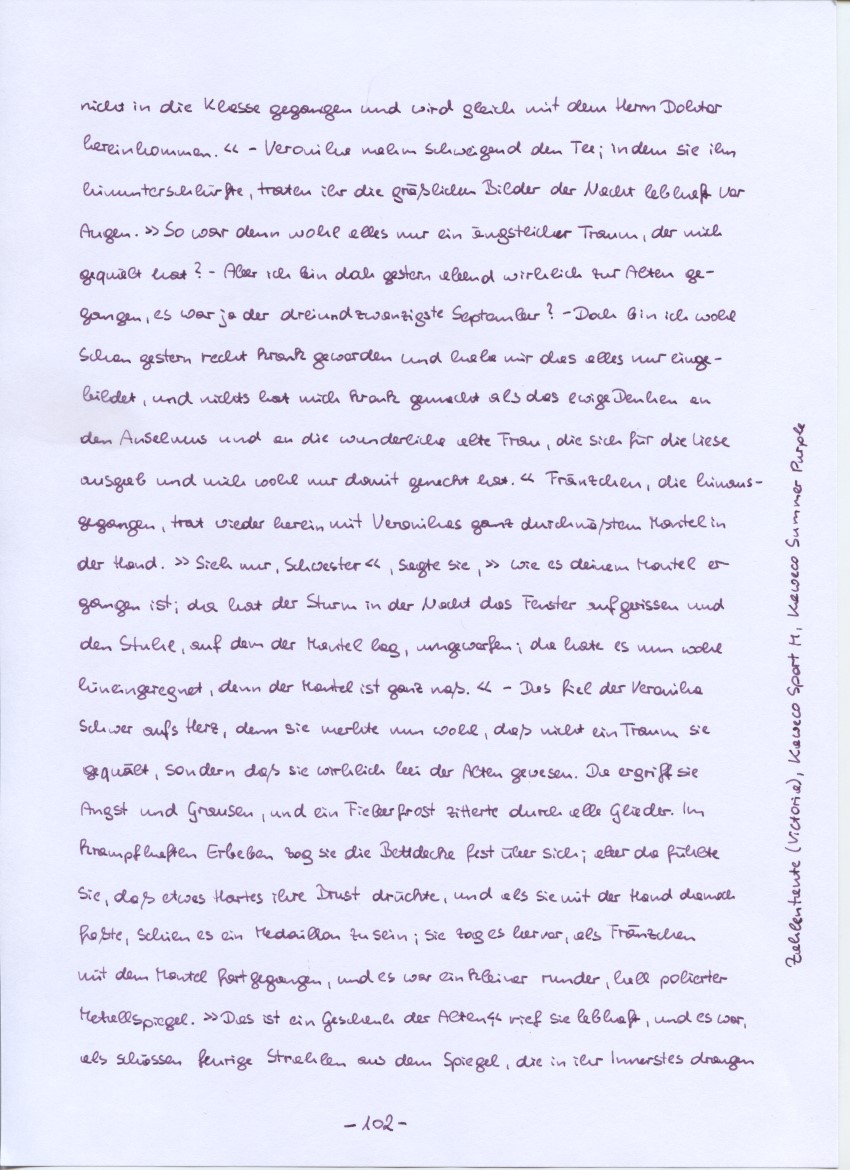 nicht in die Klasse gegangen und wird gleich mit dem Herrn Doktor
hereinkommen.“ – Veronika nahm schweigend den Tee; indem sie ihn
hinunterschlürfte, traten ihr die gräßlichen Bilder der Nacht lebhaft vor
Augen. »So war denn wohl alles nur ein ängstlicher Traum, der mich
gequält hat? – Aber ich bin doch gestern abend wirklich zur Alten ge-
gangen, es war ja der dreiundzwanzigste September? – Doch bin ich wohl
schon gestern recht krank geworden und habe mir das alles nur einge-
bildet, und nichts hat mich krank gemacht als das ewige Denken an
den Anselmus und an die wunderliche alte Frau, die sich für die Liese
ausgab und mich wohl nur damit geneckt hat.“ Fränzchen, die hinaus-
gegangen, trat wieder herein mit Veronikas ganz durchnäßtem Mantel in
der Hand. »Sieh nur, Schwester“, sagte sie, »wie es deinem Mantel er
gangen ist; da hat der Sturm in der Nacht das Fenster aufgerissen und
den Stuhl, auf dem der Mantel lag, umgeworfen; da hate es nun wohl
hineingeregnet, denn der Mantel ist ganz naß.“ – Das fiel der Veronika
schwer aufs Herz, denn sie merkte nun wohl, daß nicht ein Traum sie
gequält, sondern daß sie wirklich bei der Alten gewesen. Da ergriff sie
Angst und Grausen, und ein Fieberfrost zitterte durch alle Glieder. Im
krampfhaften Erbeben zog sie die Bettdecke fest über sich; aber da fühlte
sie, daß etwas Hartes ihre Brust drückte, und als sie mit der Hand danach
faßte, schien es ein Medaillon zu sein; sie zog es hervor, als Fränzchen
mit dem Mantel fortgegangen, und es war ein kleiner runder, hell polierter
Metallspiegel. »Das ist ein Geschenk der Alten“ rief sie lebhaft, und es war,
als schössen feurige Strahlen aus dem Spiegel, die in ihr Innerstes drangen
– 102 –
Zahlentante (Victoria), Kaweco Sport M, Kaweco Summer Purple